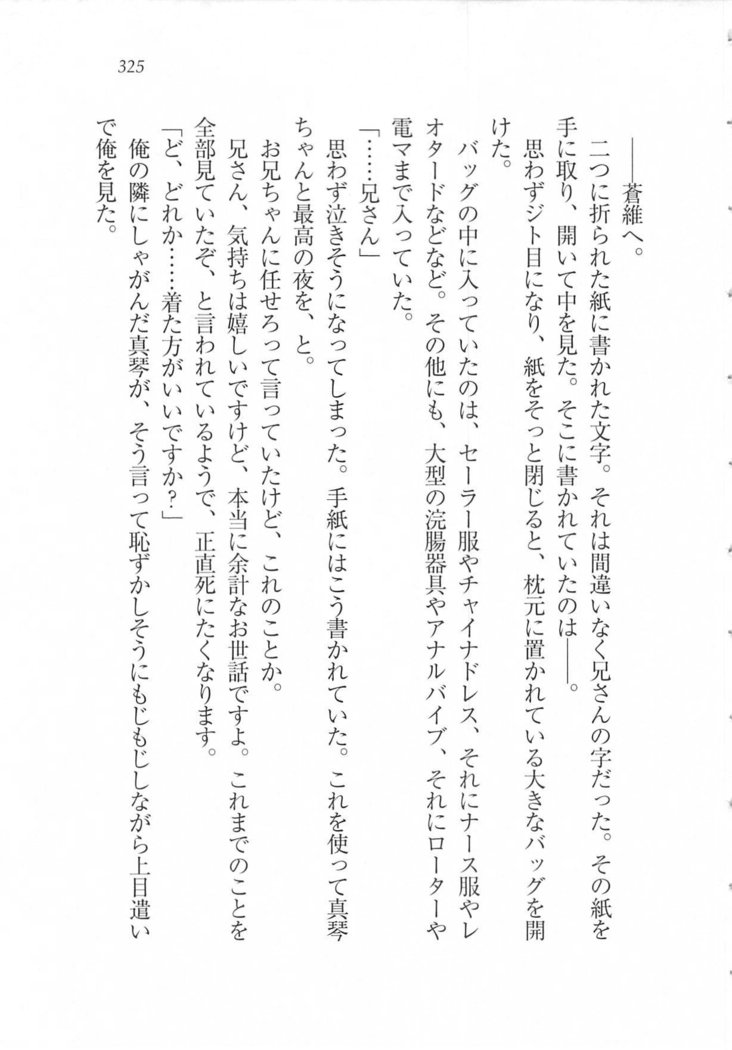 325
――蒼維へ。
二つに折られた紙に書かれた文字。それは間違いなく兄さんの字だった。その紙を
手に取り、開いて中を見た。そこに書かれていたのは――。
思わずジト目になり、紙をそっと閉じると、枕元に置かれている大きなバッグを開
けた。
バッグの中に入っていたのは、セーラー服やチャイナドレス、それにナース服やレ
オタードなどなど。その他にも、大型の浣腸器具やアナルバイブ、それにローターや
電マまで入っていた。
「……兄さん」
思わず泣きそうになってしまった。手紙にはこう書かれていた。これを使って真琴
ちゃんと最高の夜を、と。
お兄ちゃんに任せろって言っていたけど、これのことか。
兄さん、気持ちは嬉しいですけど、本当に余計なお世話ですよ。これまでのことを
全部見ていたぞ、と言われているようで、正直死にたくなります。
「ど、どれか……着た方がいいですか？」
俺の隣にしゃがんだ真琴が、そう言って恥ずかしそうにもじもじしながら上目遣い
で俺を見た。